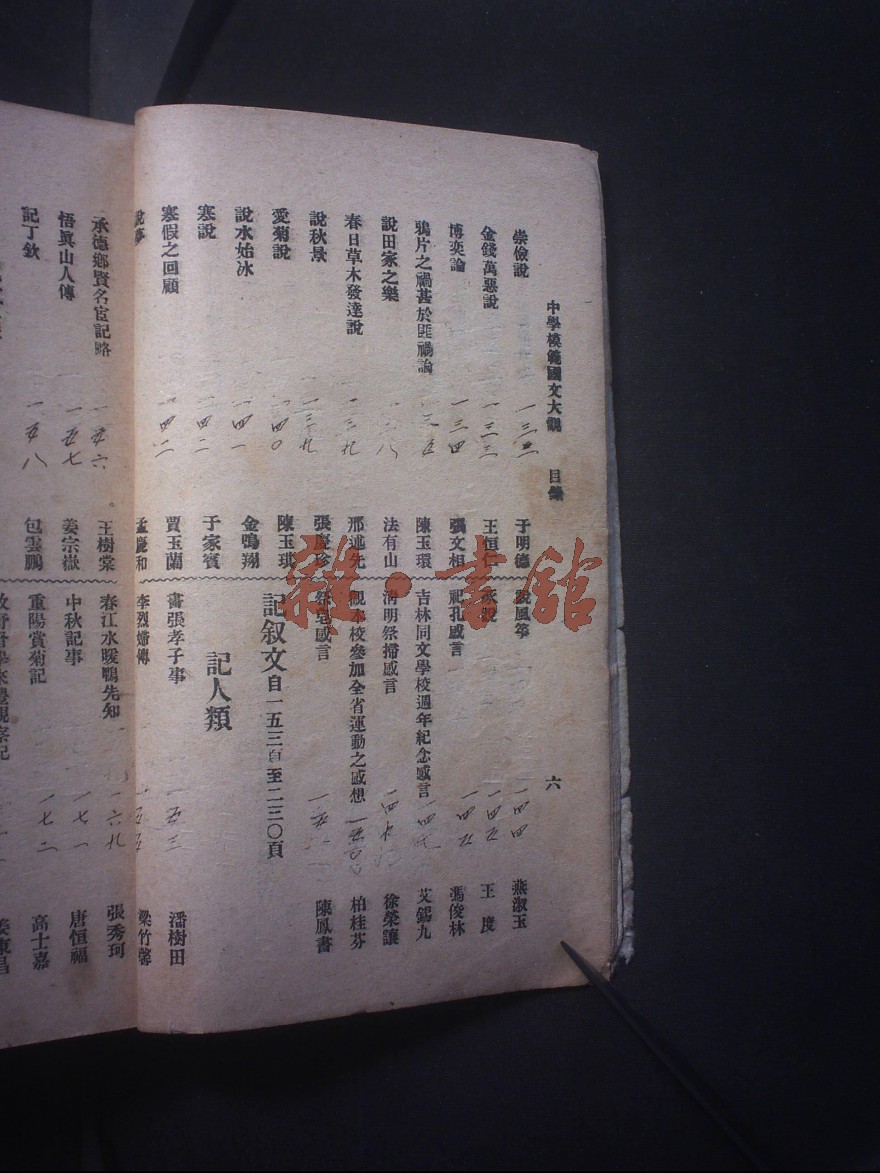 中學模範國文大觀 目錄 六
崇儉說 一三二 于明德
金錢萬惡說 一三三 王恒仁
博奕論 一三四 張文相
鴉片之禍甚於匪禍論 一三五 陳玉環
說田家之樂 一三八 法有山
春日草木發達說 一三九 邢述先
說秋景 一三九 張慶珍
愛菊說 一四〇 陳玉琪
說水始冰 一四一 金鳴翔
寒說 一四二 于家賓
寒假之回顧 一四二 賈玉蘭
孟慶和
說風箏 一四四 燕淑玉
一四五 王度
祀孔感言 一四五 馮俊林
吉林同文學校週年紀念感言 艾錫九
清明祭掃感言 徐榮讓
觀本校參加全省運動之感想 一五〇 柏桂芬
感言 陳鳳書
記叙文 自一五三頁至二三〇頁
記人類
書張孝子事 一五三 潘樹田
李烈婦傳 一五五 梁竹馨
承德鄉賢名宦記略 一五六 王樹棠
悟眞山人傳 一五七 姜宗嶽
記丁欽 一五八 包雲鵬
春江水暖鴨先知 一六九 張秀珂
中秋記事 一七一 唐恒福
重陽賞菊記 一七二 高士嘉
雜·書館